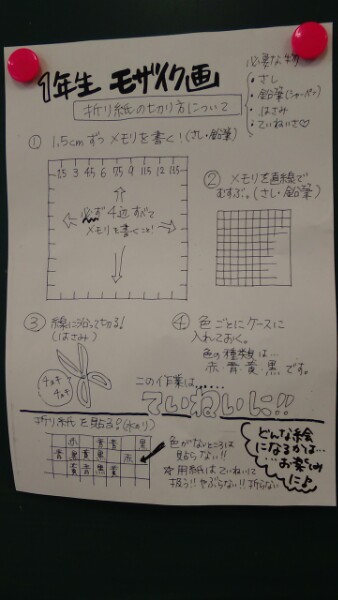 1年生 モザイク画
折り紙の切り方について
必要な物
・さし
・鉛筆(シャーペン)
・はさみ
・ていねいさ♡
① 1.5cmずつメモリを書く!(さし・鉛筆)
1.5 3 4.5 6 7.5 9 10.5 12 13.5
必ず4辺すべて
メモリを書くこと!
② メモリを直線で
むすぶ。(さし・鉛筆)
③ 線に沿って切る!
(はさみ)
チョキ
チョキ
④ 色ごとにケースに
入れておく。
色の種類は…
赤・青・黄・黒です。
この作業は……
ていねいに!!
折り紙を貼る?(水のり)
赤 青 黄 黒
青 黒 黄 黒 赤
黄 青 黒 黄
色がないところは
貼らない!!
※用紙はていねいに
扱う!!やぶらない!!折らない
どんな絵
になるかは…
…お楽しみ
に♪